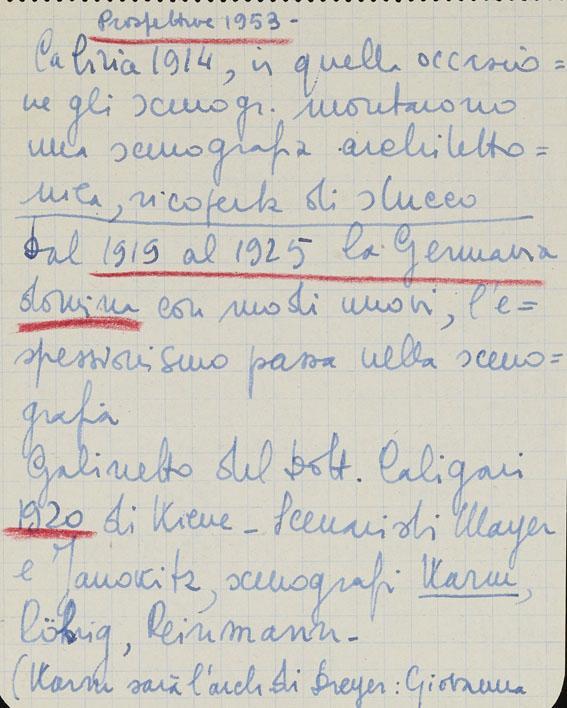 Prospettive 1953 -
Cabiria 1914, in quella occasio=
ne gli scenogr. montarono
una scenografia architetto=
nica, ricoperta di stucco
Dal 1919 al 1925 la Germania
domina con modi nuovi, l'e=
spessionismo passa nella sceno=
grafia
Gabinetto del Dott. Caligari
1920 di Kiene - Scenaristi Mayer
e Janokitz, scenografi Warm,
Röhrig, Reinmann -
(Warm sarà l'arch. di Dreyer: Giovanna